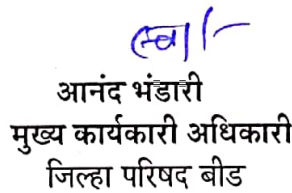 (स्वा/-
आनंद भंडारी
मुख्य कार्यकारी अधिकारी
जिल्हा परिषद बीड